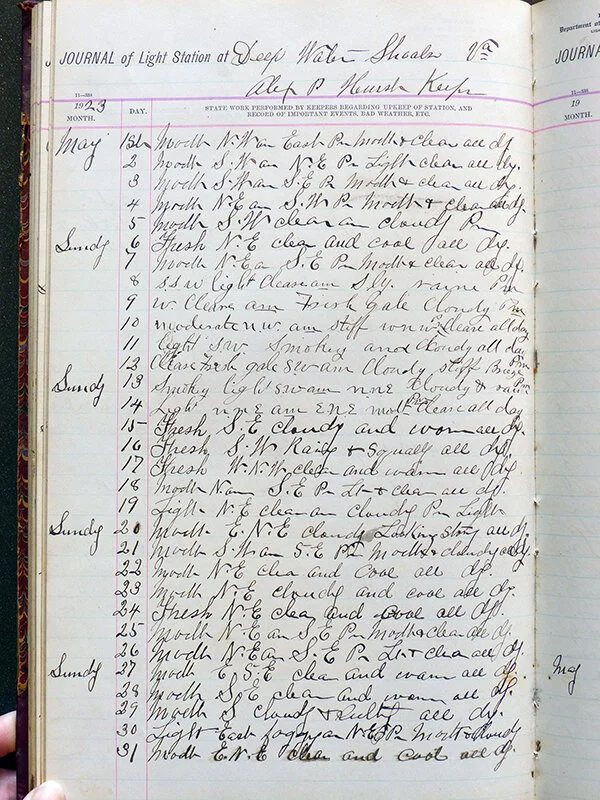 JOURNAL of Light Station at Deep Water Shoals Va
Alex P Hurst Keeper
11—388
1923
MONTH. DAY. STATE WORK PERFORMED BY KEEPERS REGARDING UPKEEP OF STATION, AND
RECORD OF IMPORTANT EVENTS, BAD WEATHER, ETC.
May 1st Modth N.W am East Pm Modth & clear all dy
2 Modth S.W am N.E Pm Light clear all dy.
3 Modth S.W am S.E Pm Modth & clear all dy.
4 Modth N.E am S.W Pm Modth & clear all dy.
5 Modth S.W clear am cloudy Pm
Sundy 6 Fresh N.E clear and cool all dy.
7 Modth N.E am S.E Pm Modth & clear all dy.
8 SSW light Cleare am Sly. rayne Pm
9 W. Cleare am Fresh gale Cloudy Pm
10 moderate NW. am stiff WNW Pm Cleare all day
11 light SW Smokey and Cloudy all day
12 Cleare Fresh gale SW am Cloudy stiff Breeze Pm
Sundy 13 Smokey light SW am NNE Cloudy & rain Pm
14 Light NNE am ENE mod Pm Cleare all day
15 Fresh S.E cloudy and warm all dy.
16 Fresh S.W Rainy & Squally all dy.
17 Fresh W.N.W clear and warm all dy.
18 Modth N am S.E Pm Lt & clear all dy.
19 Light N.E clear am cloudy Pm Light
Sundy 20 Modth E.N.E cloudy Looking Stormy all dy
21 Modth S.W am S.E Pm Modth & cloudy all dy
22 Modth N.E clear and cool all dy.
23 Modth N.E cloudy and cool all dy.
24 Fresh N.E clear and cool all dy.
25 Modth N.E am S.E Pm Modth & clear all dy.
26 Modth N.E am S.E Pm Lt & clear all dy.
Sundy 27 Modth E.S.E clear and warm all dy.
28 Modth S.E clear and warm all dy.
29 Modth S cloudy & all dy.
30 Light East foggy am N.E Pm Modth & cloudy
31 Modth E.N.E clear and cool all dy.
Department of
JOURNA
19
MONTH.
May